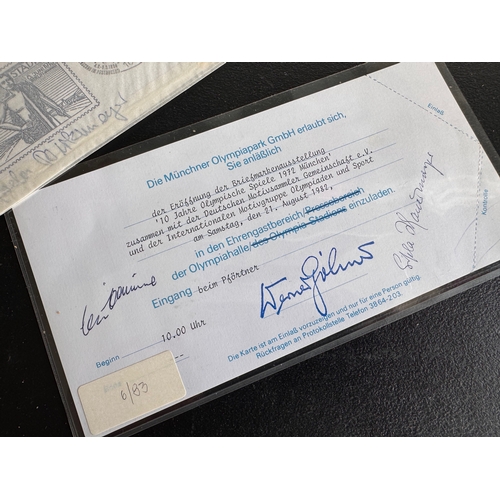 Die Münchner Olympiapark GmbH erlaubt sich,
Sie anläßlich
der Eröffnung der Briefmarkenausstellung
'10 Jahre Olympische Spiele 1972 München'
zusammen mit der Deutschen Motivsammler Gemeinschaft e.v.
und der Internationalen Motivgruppe Olympiaden und Sport
am Samstag, den 21. August 1982,
in den Ehrengastbereich/Pressebereich
der Olympiahalle/des Olympia-Stadions einzuladen.
Eingang beim Pförtner
Beginn 10.00 Uhr
Die Karte ist am Einlaß vorzuzeigen und nur für eine Person gültig.
Rückfragen an Protokollstelle, Telefon 3864-203.
Einlaß
Kontrolle
Werner Göhner
6/83